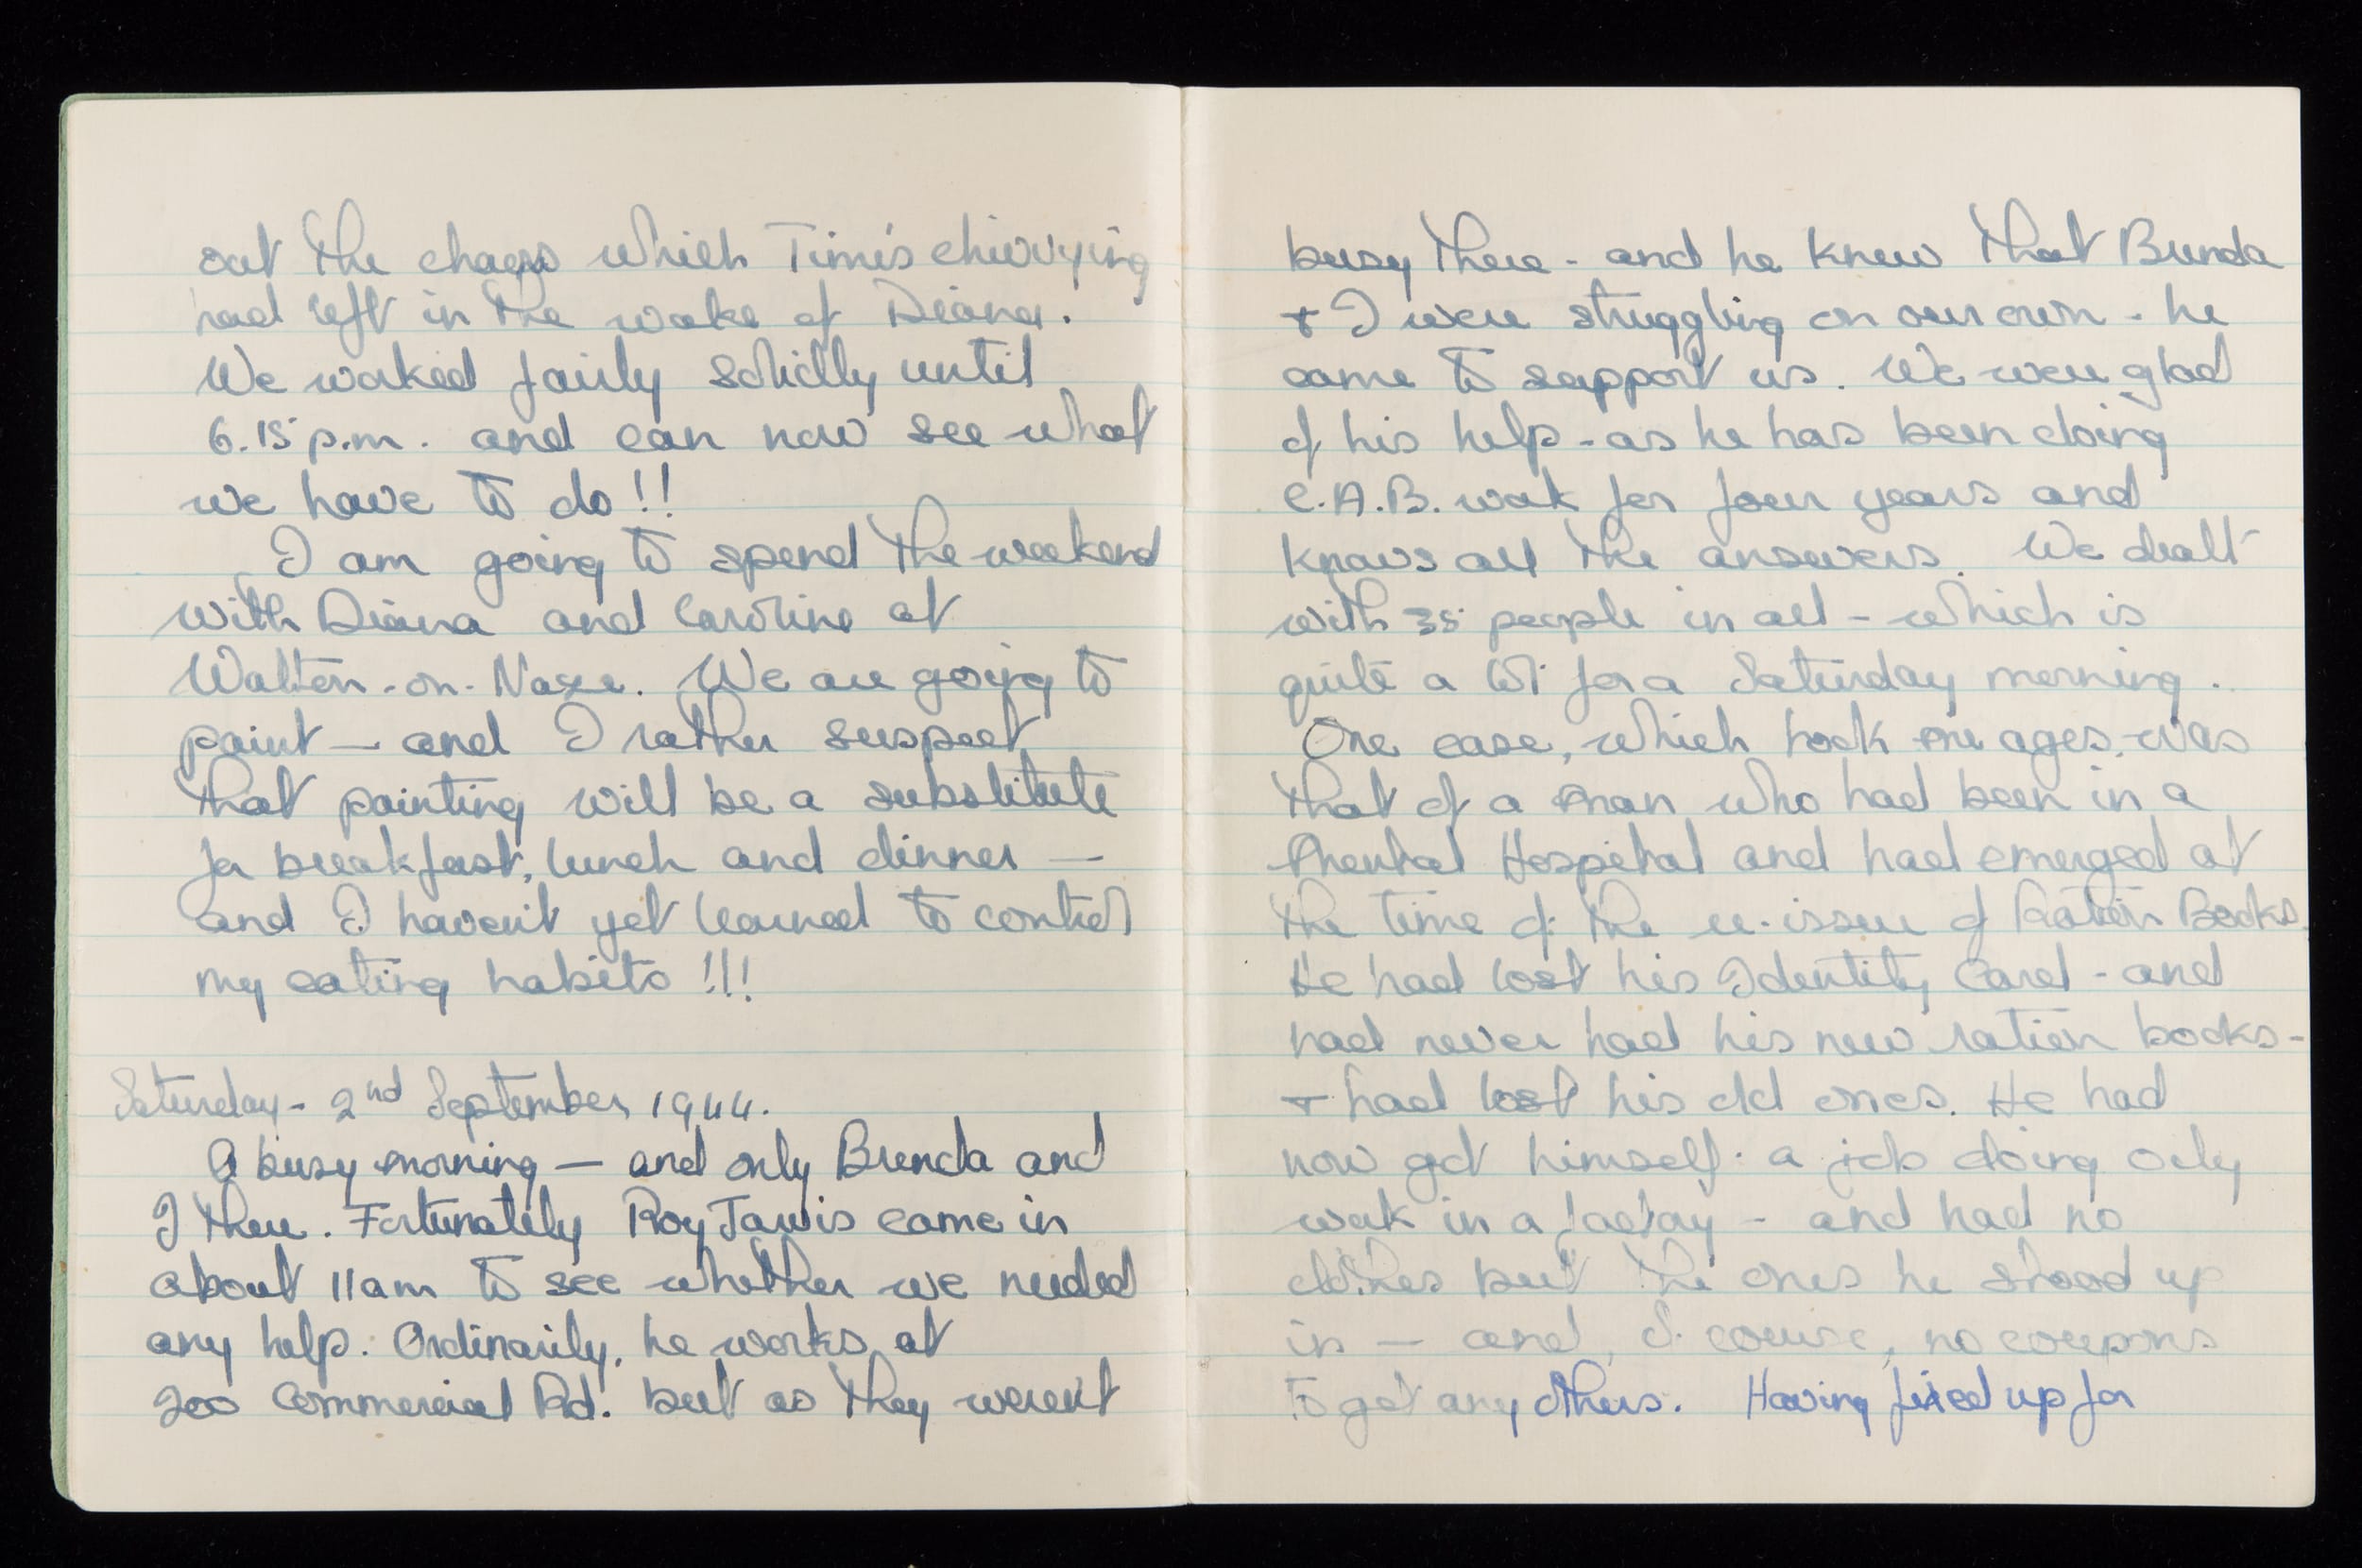 out the chaos which Tim's chivvying
had left in the wake of Diana.
We worked fairly solidly until
6.15 p.m. and can now see what
we have to do!!
I am going to spend the weekend
with Diana and Caroline at
Walton-on-Naze. We are going to
paint — and I rather suspect
that painting will be a substitute
for breakfast, lunch and dinner —
and I haven't yet learned to control
my eating habits!!!
Saturday - 2nd September 1944.
A busy morning — and only Brenda and
I there. Fortunately Roy Jarvis came in
about 11am to see whether we needed
any help. Ordinarily, he works at
200 Commercial Rd. but as they weren't
busy there - and he knew that Brenda
+ I were struggling on our own - he
came to support us. We were glad
of his help - as he has been doing
C.A.B. work for four years and
knows all the answers. We dealt
with 35 people in all - which is
quite a lot for a Saturday morning.
One case, which took me ages, was
that of a man who had been in a
Mental Hospital and had emerged at
the time of the re-issue of Ration Books.
He had lost his Identity Card - and
had never had his new ration books -
+ had lost his old ones. He had
now got himself a job doing oily
work in a factory - and had no
clothes but the ones he stood up
in — and, of course, no coupons
to get any others. Having fixed up for